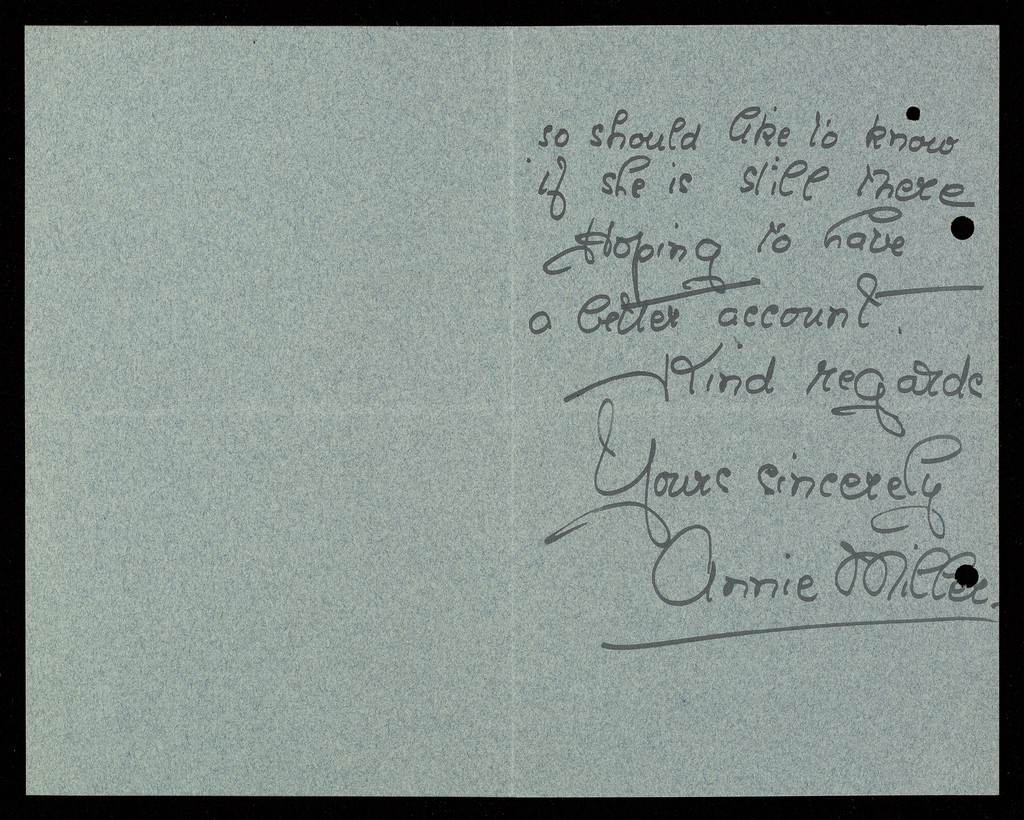 so should like to know
if she is still there
Hoping to have
a better account.
Kind regards
Yours sincerely
Annie Miller.